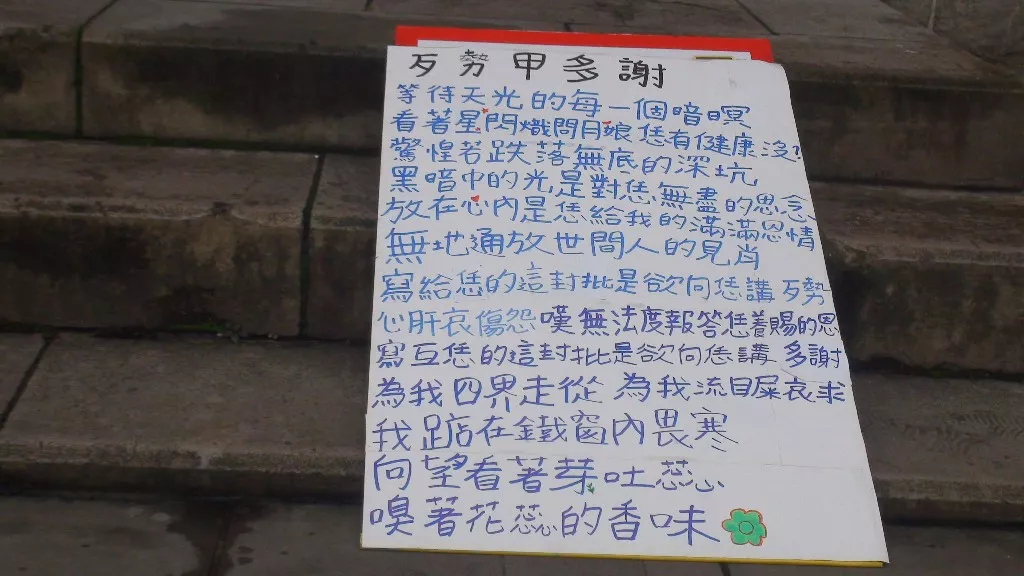 歹勢甲多謝
等待天光的每一個暗暝
看著星閃熾問月娘恁有健康沒?
驚惶若跌落無底的深坑
黑暗中的光是對恁無盡的思念
放在心內是恁給我的滿滿恩情
無地通放世間人的見肖
寫給恁的這封批是欲向恁講 歹勢
心肝哀傷怨嘆無法度報答恁養賜的恩
寫互恁的這封批是欲向恁講 多謝
為我四界走從 為我流目屎哀求
我踮在鐵窗內畏寒
向望看著芽吐蕊
嗅著花蕊的香味